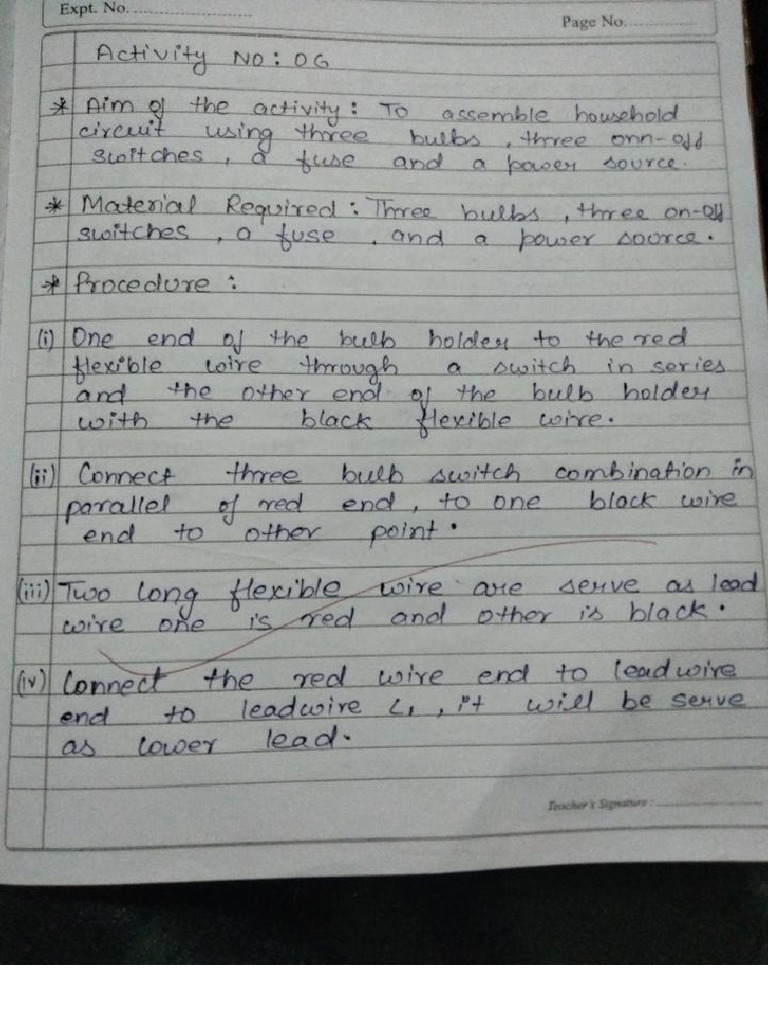 Expt. No.
Page No.
Activity No: 06
* Aim of the activity: To assemble household
circuit using three bulbs, three onn-off
switches, a fuse and a power source.
* Material Required: Three bulbs, three on-off
switches, a fuse, and a power source.
* Procedure:
(i) One end of the bulb holder to the red
flexible wire through a switch in series
and the other end of the bulb holder
with the black flexible wire.
(ii) Connect three bulb switch combination in
parallel of red end, to one black wire
end to other point.
(iii) Two long flexible wire are serve as lead
wire one is red and other is black.
(iv) Connect the red wire end to lead wire
end to leadwire L1, it will be serve
as lower lead.
Teacher's Signature: